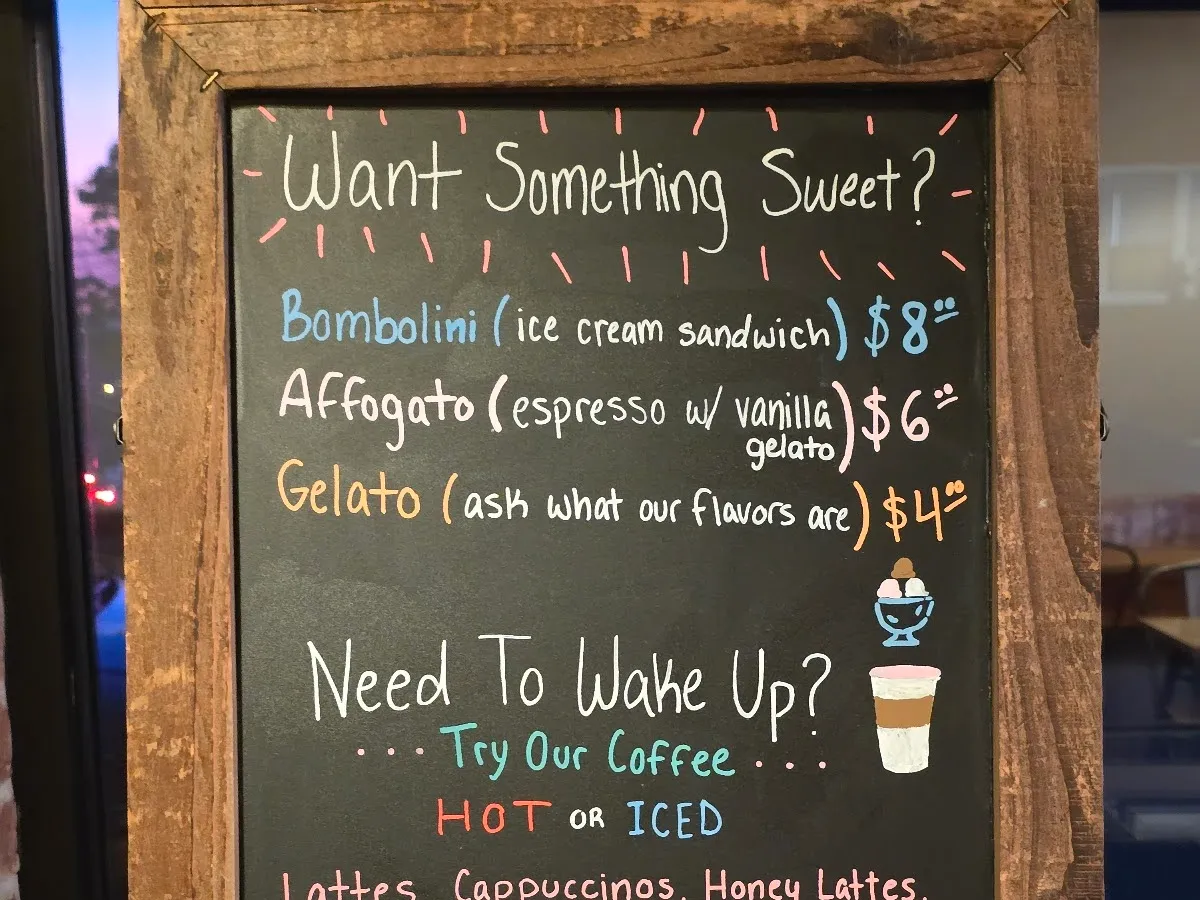 Want Something Sweet?
Bombolini (ice cream sandwich) $8.00
Affogato (espresso w/ vanilla gelato) $6.00
Gelato (ask what our flavors are) $4.00
Need To Wake Up?
... Try Our Coffee ...
HOT OR ICED
Lattes, Cappuccinos, Honey Lattes,